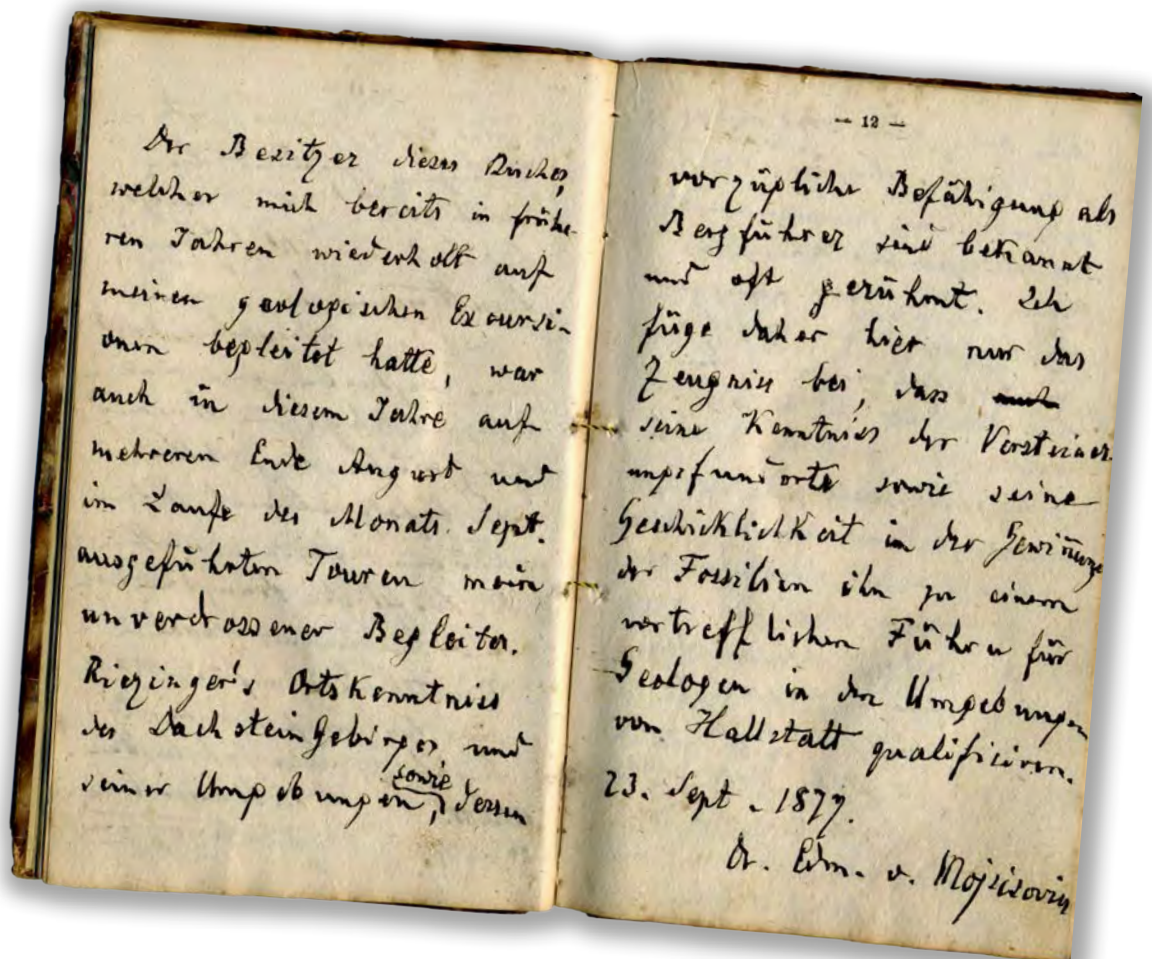 Der Besitzer dieses Buches,
welcher mich bereits in frühe-
ren Jahren wiederholt auf
meinen geologischen Excursi-
onen begleitet hatte, war
auch in diesem Jahre auf
mehreren Ende August und
im Laufe des Monats Sept.
ausgeführten Touren mein
unverdrossener Begleiter.
Riezinger's Ortskenntniss
des Dachsteingebirges und
sowie
seiner Umgebungen, dessen
— 12 —
vorzügliche Befähigung als
Bergführer sind bekannt
und oft gerühmt. Ich
füge daher hier nur das
Zeugniss bei, dass
seine Kenntniss der Versteiner-
ungsfundorte sowie seine
Geschicklichkeit in der Gewinnung
der Fossilien ihn zu einem
vortrefflichen Führer für
Geologen in den Umgebungen
von Hallstatt qualificiren.
23. Sept. 1877.
Dr. Edm. v. Mojsisovics